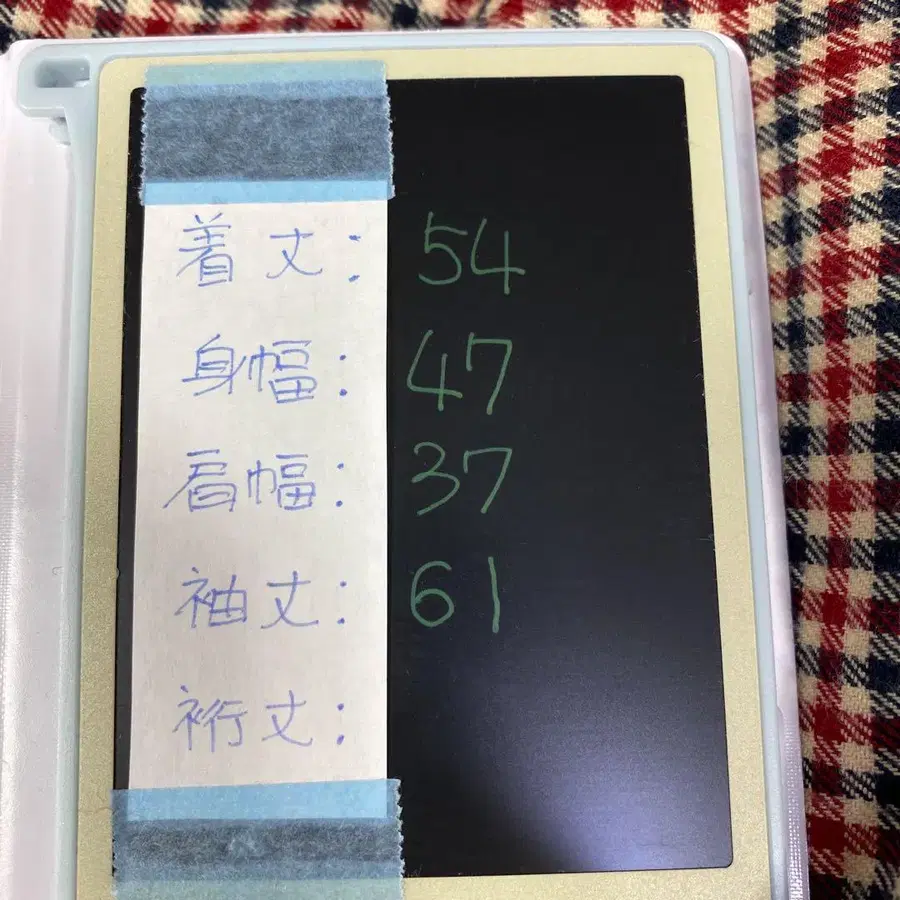 着丈: 54
身幅: 47
肩幅: 37
袖丈: 61
裄丈: